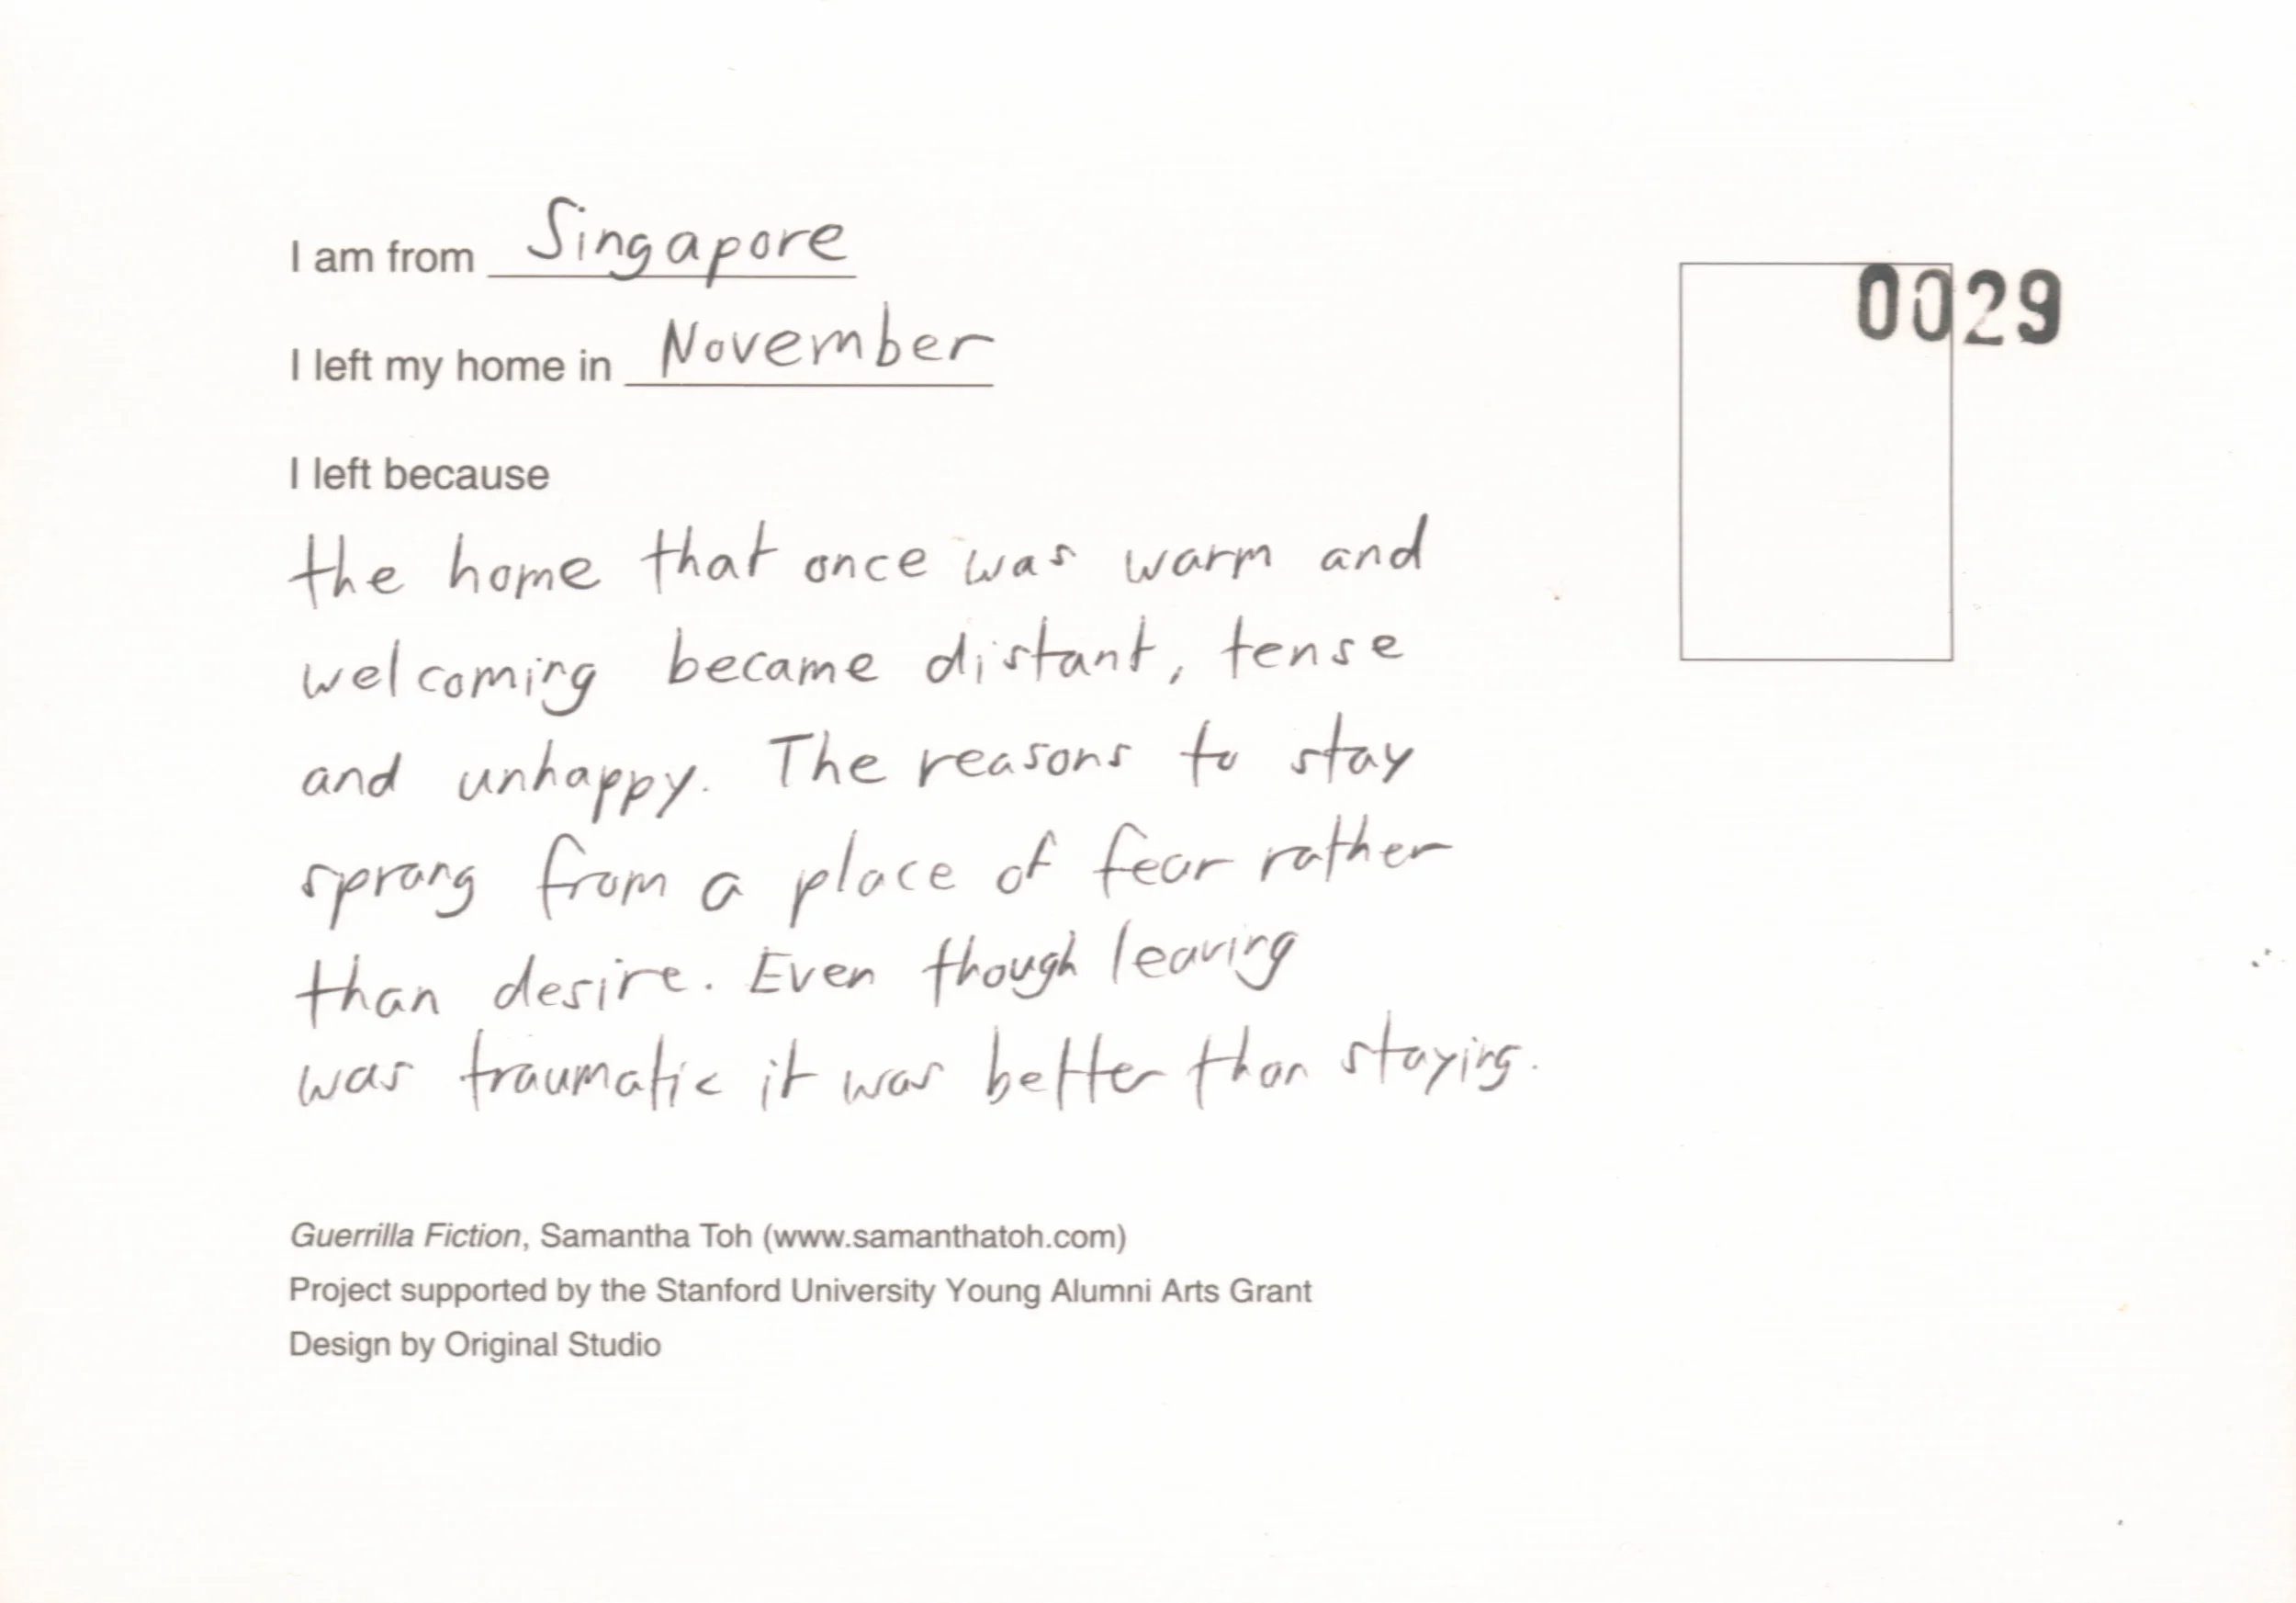 I am from Singapore
0029
I left my home in November
I left because
the home that once was warm and
welcoming became distant, tense
and unhappy. The reasons to stay
sprang from a place of fear rather
than desire. Even though leaving
was traumatic it was better than staying.
Guerrilla Fiction, Samantha Toh (www.samanthatoh.com)
Project supported by the Stanford University Young Alumni Arts Grant
Design by Original Studio